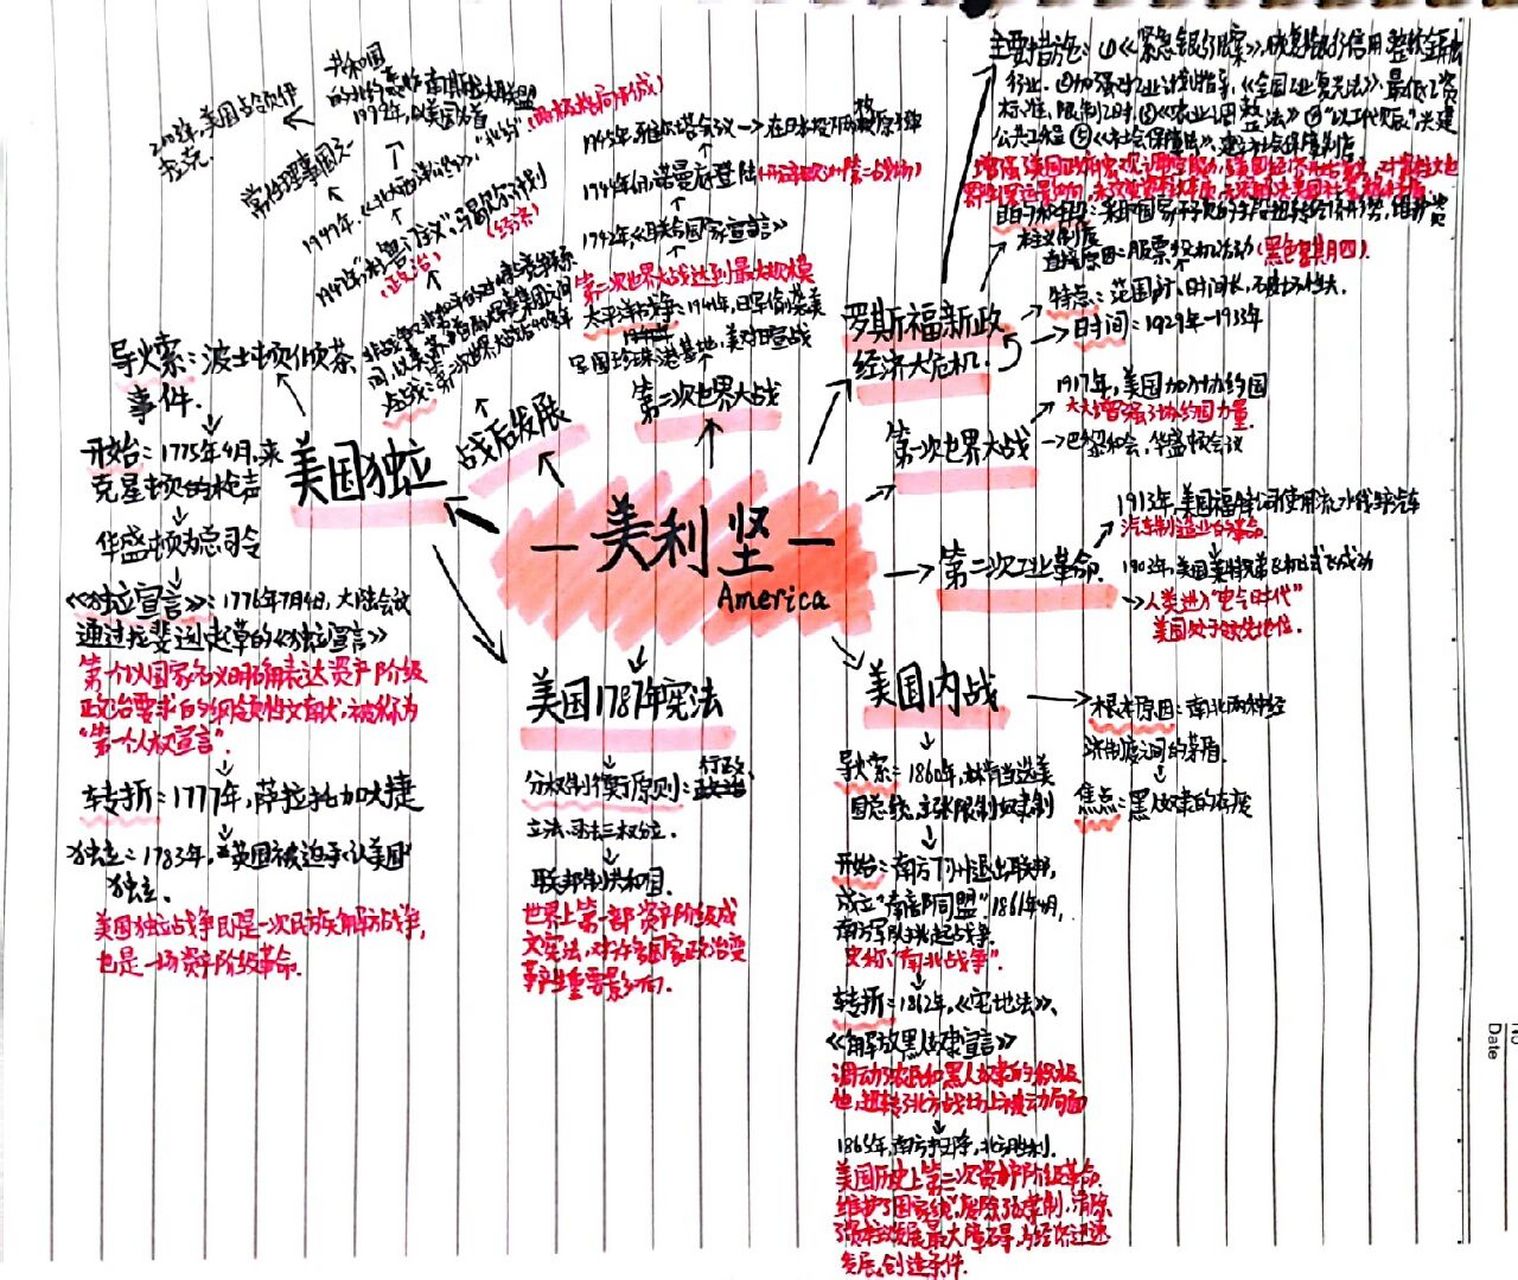 — 美利坚 —
America
美国独立
导火索：波士顿倾茶
事件.
开始：1775年4月,来
克星顿的枪声
华盛顿为总司令
《独立宣言》：1776年7月4日,大陆会议
通过杰斐逊起草的《独立宣言》
第一个以国家名义明确表达资产阶级
政治要求的纲领性文献,被称为
"第一个人权宣言".
转折：1777年,萨拉托加大捷
独立：1783年,英国被迫承认美国
独立.
美国独立战争即是一次民族解放战争,
也是一场资产阶级革命.
美国1787年宪法
分权制衡原则：行政、
立法、司法三权分立.
联邦制共和国.
世界上第一部资产阶级成
文宪法,对许多国家政治变
革产生重要影响.
美国内战
根本原因：南北两种经
济制度之间的矛盾.
焦点：黑人奴隶的存废
导火索：1860年,林肯当选美
国总统,主张限制奴隶制
开始：南方7州退出联邦,
成立"南部同盟".1861年4月,
南方军队挑起战争.
史称"南北战争".
转折：1862年,《宅地法》、
《解放黑人奴隶宣言》
调动了农民和黑人奴隶的积极
性,扭转了北方战场上被动局面
1865年,南方投降,北方胜利.
美国历史上第二次资产阶级革命.
维护了国家统一,废除了奴隶制,清除
了资本主义发展最大障碍,为经济迅速
发展,创造条件.
第二次工业革命.
1913年,美国福特公司使用流水线生产汽车
汽车制造业的革命.
1903年,美国莱特兄弟飞机试飞成功
人类进入"电气时代"
美国处于领先地位.
第一次世界大战
1917年,美国加入协约国
大大增强了协约国力量.
巴黎和会,华盛顿会议
罗斯福新政
经济大危机.
时间：1929年—1933年
特点：范围广、时间长、破坏性大.
直接原因：股票投机活动(黑色星期四).
主要措施：①《紧急银行法案》,恢复银行信用,整顿金融
行业.②加强对工业计划指导,《全国工业复兴法》,最低工资
标准,限制工时.③《农业调整法》④"以工代赈",兴建
公共工程⑤《社会保障法》,建立社会保障制度
第二次世界大战
太平洋战争：1941年,日军偷袭美
国珍珠港基地,美对日宣战
第二次世界大战达到最大规模
1942年《联合国家宣言》
1944年6月,诺曼底登陆(开辟欧洲第二战场)
1945年,雅尔塔会议→在日本投下两枚原子弹
战后发展
冷战：第二次世界大战后40多年
间,以美苏为首的两大军事集团之间
1947年"杜鲁门主义",马歇尔计划
(政治)
(经济)
1949年,《北大西洋公约》,"北约".(两极格局形成)
常任理事国之一
2003年,美国占领伊
拉克.
No
Date